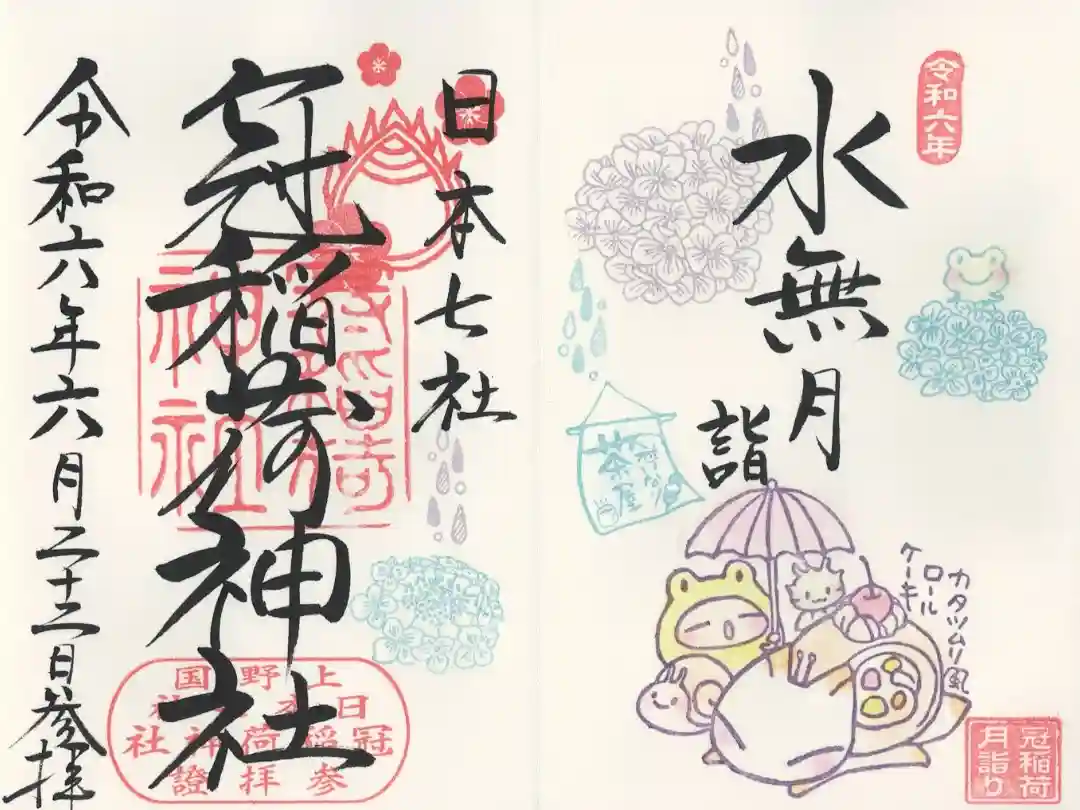 令和六年
水無月
詣
茶屋
カタツムリ風
ロール
ケーキ
冠稲荷
月詣り
日本七社
冠稲荷神社
令和六年六月二十二日参拝
上野国
日本七社
冠稲荷神社
参拝證